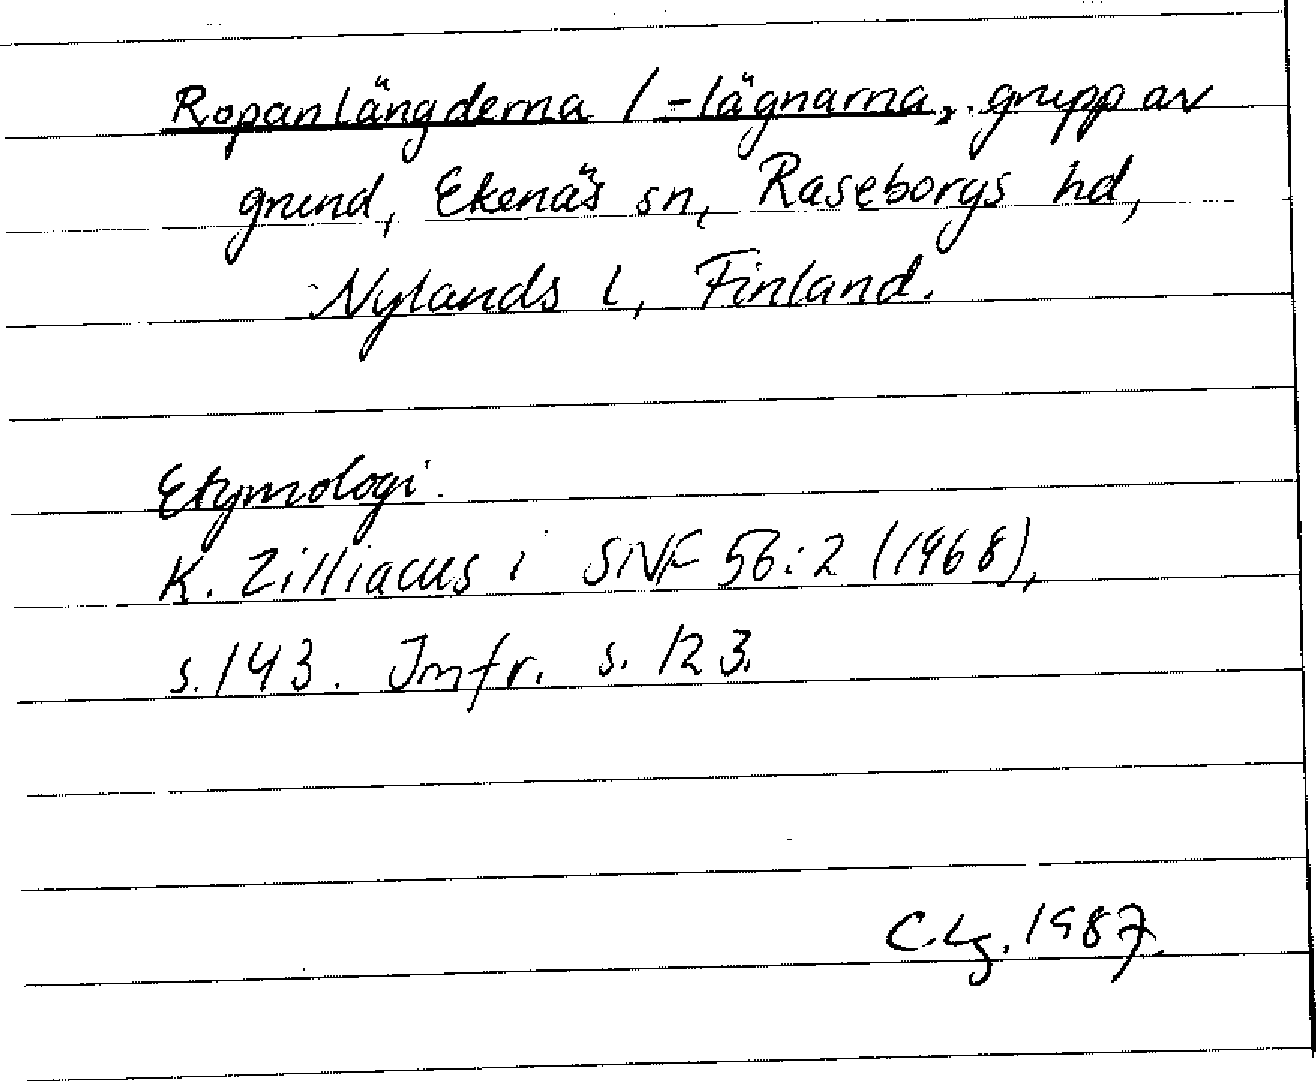 Ropanlängderna / -lägnarna, grupp av
grund, Ekenäs sn, Raseborgs hd,
Nylands l, Finland.
Etymologi.
K. Zilliacus i SNF 56:2 (1968),
s. 143. Jmfr. s. 123.
C.Lg. 1987.